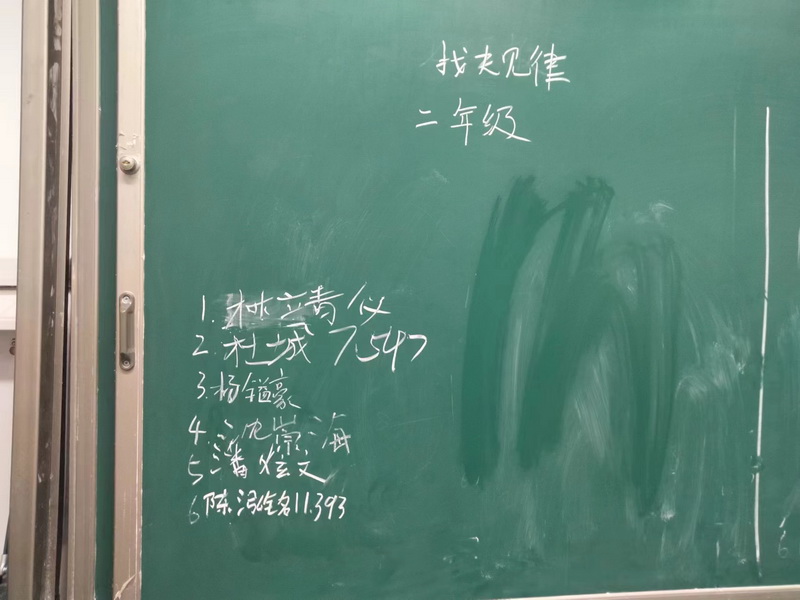 找夫规律
二年级
1. 林靖仪
2. 杜城 7.547
3. 杨镒豪
4. 沈崇海
5 潘煊文
6 陈 11.393
6